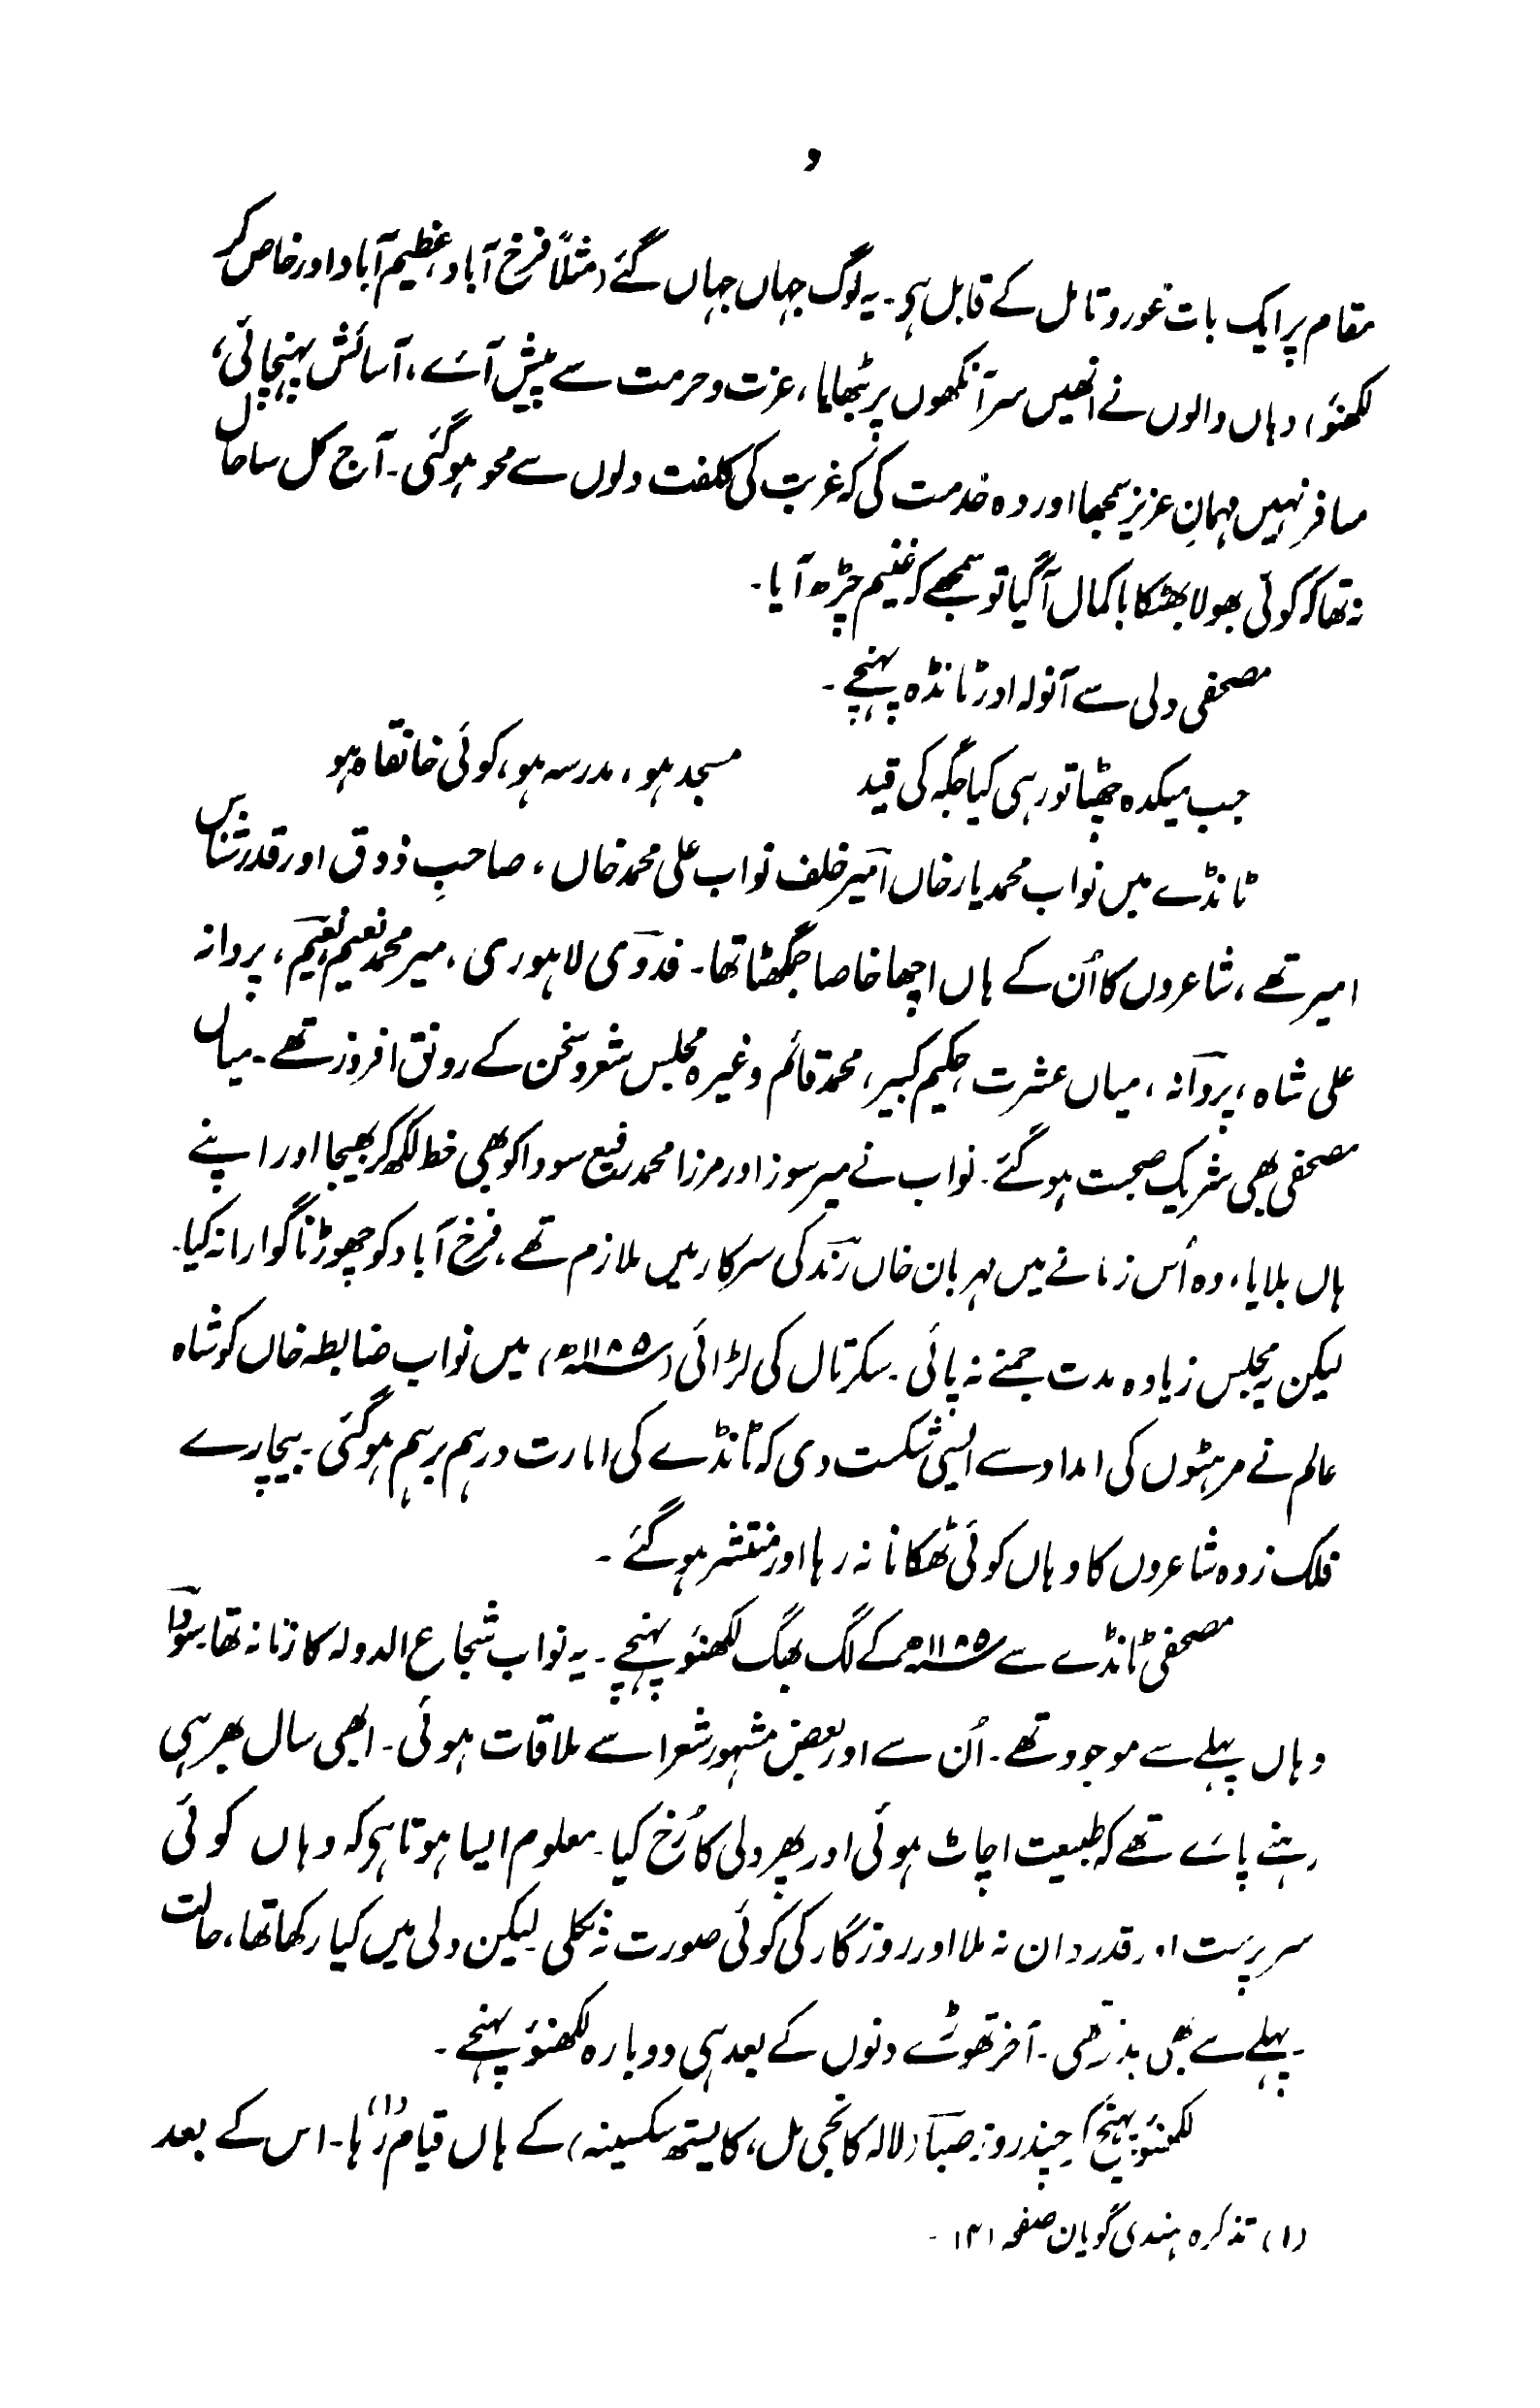 و
مقام پر ایک بات غور و تامل کے قابل ہی۔ یہ لوگ جہاں جہاں گئے (مثلاً فرخ آباد، عظیم آباد اور خاص کر
لکھنؤ) وہاں والوں نے انھیں سر آنکھوں پر بٹھایا، عزت و حرمت سے پیش آئے، آسائش پہنچائی،
مسافر نہیں مہمانِ عزیز سمجھا اور وہ خدمت کی کہ غربت کی کلفت دلوں سے محو ہو گئی۔ آج کل سا حال
نہ تھا کہ کوئی بھولا بھٹکا باکمال آگیا تو سمجھے کہ غنیم چڑھ آیا۔
مصحفی دلی سے آنولہ اور ٹانڈہ پہنچے۔
جب میکدہ چھٹا تو رہی کیا جگہ کی قید مسجد ہو، مدرسہ ہو، کوئی خانقاہ ہو
ٹانڈے میں نواب محمد یار خاں امیر خلف نواب علی محمد خاں، صاحبِ ذوق اور قدر شناس
امیر تھے، شاعروں کا اُن کے ہاں اچھا خاصا جمگھٹا تھا۔ فدوی لاہوری، میر محمد نعیم نعیم، پروانہ
علی شاہ، پروانہ، میاں عشرت، حکیم کبیر، محمد قائم وغیرہ مجلس شعر و سخن کے رونق افروز تھے۔ میاں
مصحفی بھی شریک صحبت ہو گئے۔ نواب نے میر سوز اور مرزا محمد رفیع سودا کو بھی خط لکھ کر بھیجا اور اپنے
ہاں بلایا، وہ اُس زمانے میں مہربان خاں رند کی سرکار میں ملازم تھے، فرخ آباد کو چھوڑنا گوارا نہ کیا۔
لیکن یہ مجلس زیادہ مدت جمنے نہ پائی۔ سکرتال کی لڑائی (۱۱۸۵ھ) میں نواب ضابطہ خاں کو شاہ
عالم نے مرہٹوں کی امداد سے ایسی شکست دی کہ ٹانڈے کی امارت درہم برہم ہو گئی۔ بیچارے
فلک زدہ شاعروں کا وہاں کوئی ٹھکانا نہ رہا اور منتشر ہو گئے۔
مصحفی ٹانڈے سے ۱۱۸۵ھ کے لگ بھگ لکھنؤ پہنچے۔ یہ نواب شجاع الدولہ کا زمانہ تھا۔ سودا
وہاں پہلے سے موجود تھے۔ اُن سے اور بعض مشہور شعرا سے ملاقات ہوئی۔ ابھی سال بھر ہی
رہنے پائے تھے کہ طبیعت اچاٹ ہوئی اور پھر دلی کا رُخ کیا۔ معلوم ایسا ہوتا ہی کہ وہاں کوئی
سرپرست اور قدردان نہ ملا اور روزگار کی کوئی صورت نہ نکلی لیکن دلی میں کیا رکھا تھا، حالت
پہلے سے بھی بدتر تھی۔ آخر تھوڑے دنوں کے بعد ہی دوبارہ لکھنؤ پہنچے۔
لکھنؤ پہنچ کر چند روز صبا (لالہ کانجی مل، کایستھ سکسینہ) کے ہاں قیام رہا(۱)۔ اس کے بعد
(۱) تذکرہ ہندی گویان صفحہ ۱۴۱۔